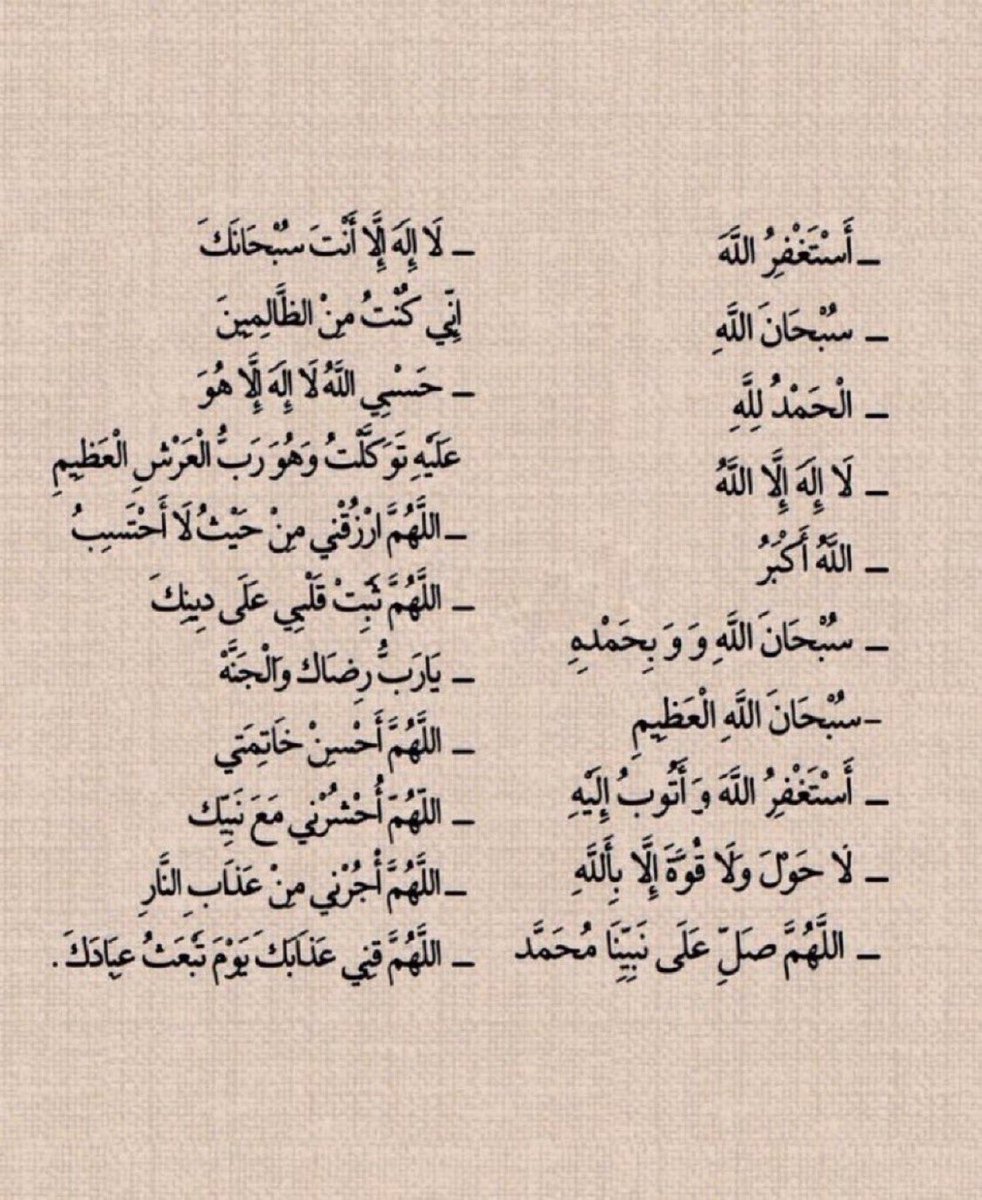 _ أَسْتَغْفِرُ اللَّهَ
_ سُبْحَانَ اللَّهِ
_ الْحَمْدُ لِلَّهِ
_ لَا إِلَهَ إِلَّا اللَّهُ
_ اللَّهُ أَكْبَرُ
_ سُبْحَانَ اللَّهِ وَ وَ بِحَمْدِهِ
-سُبْحَانَ اللَّهِ الْعَظِيمِ
_ أَسْتَغْفِرُ اللَّهَ وَ أَتُوبُ إِلَيْهِ
_ لَا حَوْلَ وَلَا قُوَّةَ إِلَّا بِأَللَّهِ
_ اللَّهُمَّ صَلِّ عَلَى نَبِيِّنَا مُحَمَّد
_ لَا إِلَهَ إِلَّا أَنْتَ سُبْحَانَكَ
إِنِّي كُنْتُ مِنْ الظَّالِمِينَ
_ حَسْبِي اللَّهُ لَا إِلَهَ إِلَّا هُوَ
عَلَيْهِ تَوَكَّلْتُ وَهُوَ رَبُّ الْعَرْشِ الْعَظِيمِ
_ اللَّهُمَّ ارْزُقْنِي مِنْ حَيْثُ لَا أَحْتَسِبُ
_ اللَّهُمَّ ثَبِتْ قَلْبِي عَلَى دِينِكَ
_ يَارَبُّ رِضَاك وَالْجَنَّهْ
_ اللَّهُمَّ أَحْسِنْ خَاتِمَتِي
_ اللَّهُمَّ أُحْشُرْنِي مَعَ نَبِيِّك
_ اللَّهُمَّ أُجُرْنِي مِنْ عَذَابِ النَّارِ
_ اللَّهُمَّ قِنِي عَذَابَكَ يَوْمَ تُبْعَثُ عِبَادَكَ .